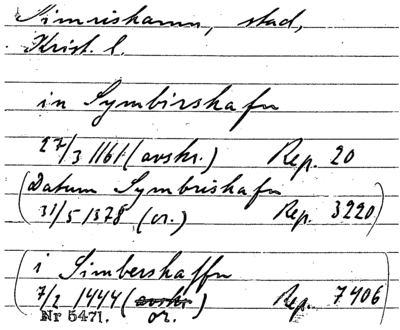 Simrishamn, stad,
Krist. l.
in Symbirshafn
27/3 1161 (avskr.) Rep. 20
(Datum Symbrishafn
31/5 1378 (or.) Rep. 3220)
(i Simbershaffn
7/2 1444 (avskr) Rep. 7406)
Nr 5471. or.